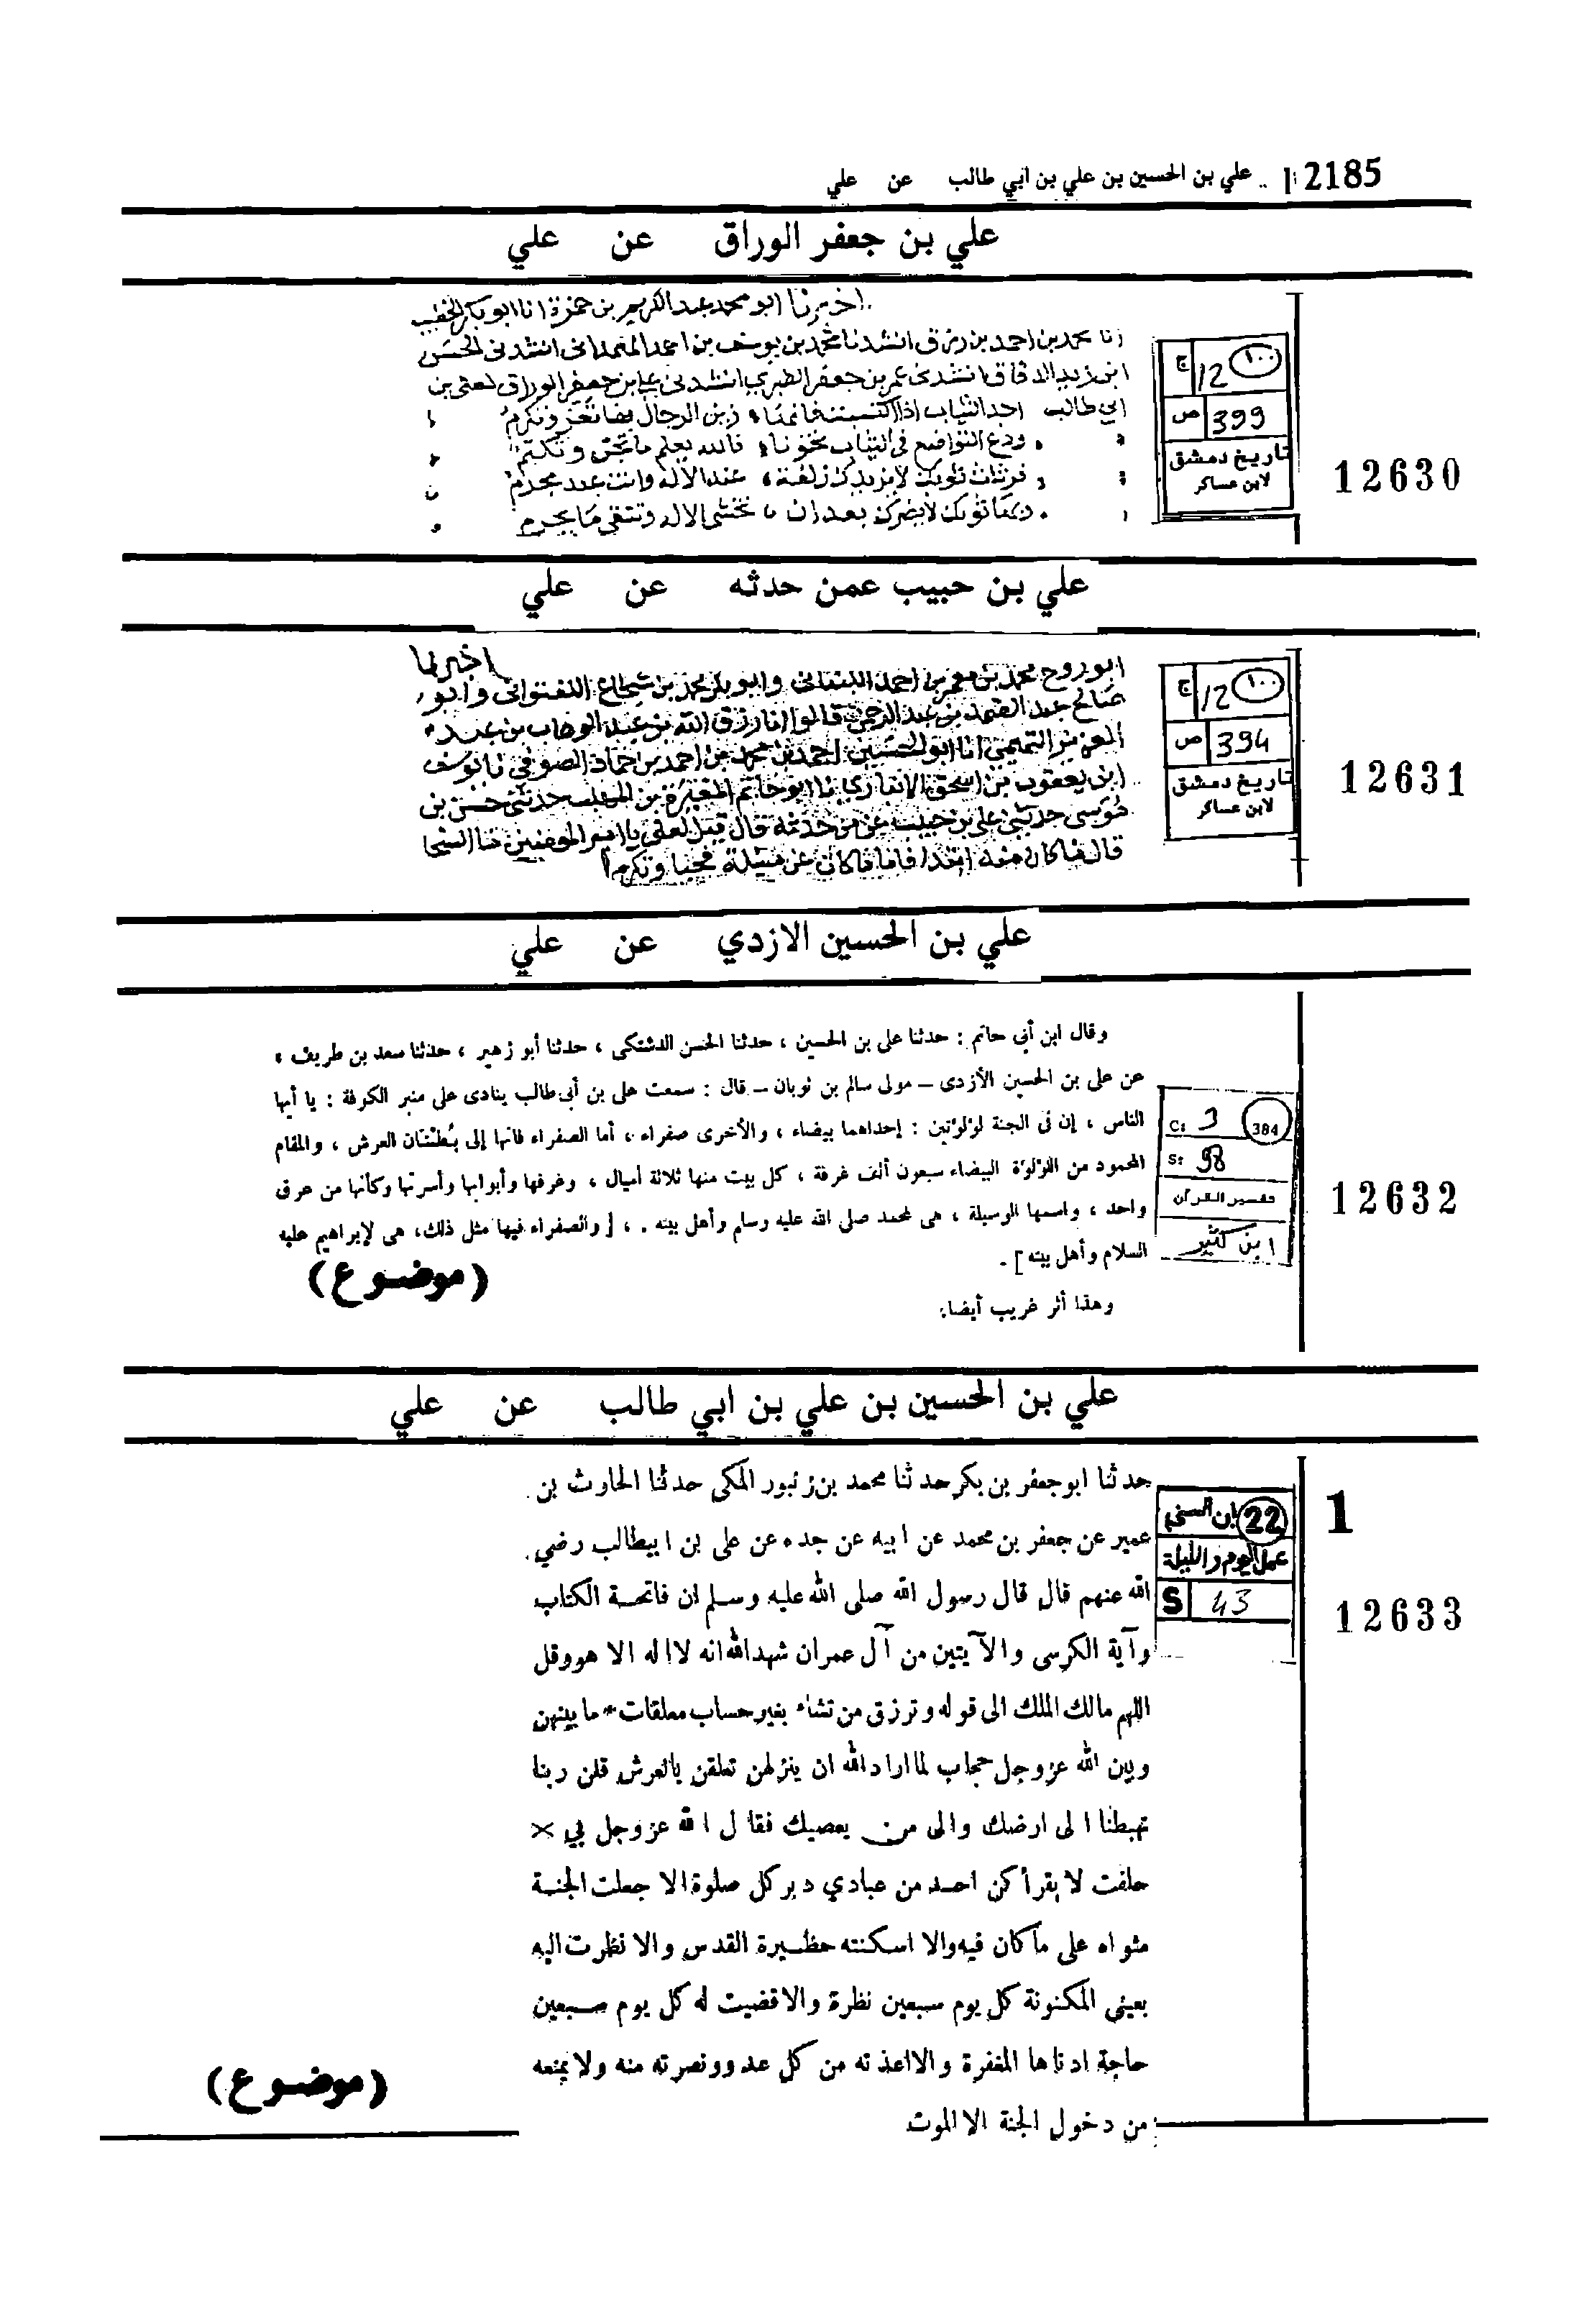 2185 .. علي بن الحسين بن علي بن ابي طالب عن علي
علي بن جعفر الوراق عن علي
اخبرنا ابو محمد عبد الكريم بن حمزة انا ابو بكر الخطيب
انا محمد بن احمد بن رزق انشدنا محمد بن يوسف بن احمد الهمداني انشدني الحسن
ابن زيد الدقاق انشدني عمر بن جعفر الطبري انشدني علي بن جعفر الوراق لعلي بن
ابي طالب اجد الثياب اذا اكتسيت فانها زين الرجال بها تعز وتكرم
ودع التواضع في الثياب تخونا فالله يعلم ما تجن وتكتم
فرثاث ثوبك لا يزيدك زلفة عند الاله وانت عبد مجرم
وبهاء ثوبك لا يضرك بعد ان تخشى الاله وتتقي ما يحرم
١٠٠ 12 ج
399 ص
تاريخ دمشق
لابن عساكر
12630
علي بن حبيب عمن حدثه عن علي
اخبرنا
ابو روح محمد بن معمر بن احمد وابو بكر محمد بن شجاع اللفتواني وابو
صالح عبد الصمد بن عبد الرحمن قالوا انا رزق الله بن عبد الوهاب بن عبد
العزيز التميمي انا ابو الحسين احمد بن محمد بن احمد بن حماد الصوفي نا يوسف
ابن يعقوب بن اسحق الانباري نا ابو حاتم المغيرة بن المهلب حدثني حسن بن
موسى حدثني علي بن حبيب عن من حدثه قال قيل لعلي يا امير المؤمنين ما السخا
قال ما كان منه ابتدا فاما ما كان عن مسئلة فحيا وتكرم
١٠٠ 12 ج
394 ص
تاريخ دمشق
لابن عساكر
12631
علي بن الحسين الازدي عن علي
وقال ابن أبي حاتم : حدثنا علي بن الحسين ، حدثنا الحسن الدشتكى ، حدثنا أبو زهير ، حدثنا سعد بن طريف ،
عن علي بن الحسين الأزدى – مولى سالم بن ثوبان – قال : سمعت علي بن أبي طالب ينادى على منبر الكوفة : يا أيها
الناس ، إن في الجنة لؤلؤتين : إحداهما بيضاء ، والأخرى صفراء ، أما الصفراء فانها إلى بُطْنَان العرش ، والمقام
المحمود من اللؤلؤة البيضاء سبعون ألف غرفة ، كل بيت منها ثلاثة أميال ، وغرفها وأبوابها وأسرتها وكأنها من عرق
واحد ، واسمها الوسيلة ، هي لمحمد صلى الله عليه وسلم وأهل بيته . ، [ والصفراء فيها مثل ذلك، هي لإبراهيم عليه
السلام وأهل بيته ] .
(موضوع)
وهذا أثر غريب أيضا.
384 C: 3
S: 98
تفسير القرآن
ابن كثير
12632
علي بن الحسين بن علي بن ابي طالب عن علي
حدثنا ابو جعفر بن بكر حدثنا محمد بن زنبور المكى حدثنا الحارث بن
عمير عن جعفر بن محمد عن ابيه عن جده عن على بن ابيطالب رضي
الله عنهم قال قال رسول الله صلى الله عليه وسلم ان فاتحة الكتاب
وآية الكرسى والآيتين من آل عمران شهد الله انه لا اله الا هو وقل
اللهم مالك الملك الى قوله وترزق من تشاء بغير حساب معلقات * ما بينهن
وبين الله عزوجل حجاب لما اراد الله ان ينزلهن تعلقن بالعرش قلن ربنا
تهبطنا الى ارضك والى من يعصيك فقال الله عزوجل بي ×
حلفت لا يقرأكن احد من عبادي دبر كل صلوة الا جعلت الجنة
مثواه على ما كان فيه والا اسكنته حظيرة القدس والا نظرت اليه
بعيني المكنونة كل يوم سبعين نظرة والا قضيت له كل يوم سبعين
حاجة ادناها المغفرة والا اعذته من كل عدو ونصرته منه ولا يمنعه
من دخول الجنة الا الموت
(موضوع)
22 ابن السني
عمل اليوم والليلة
S 43
1
12633